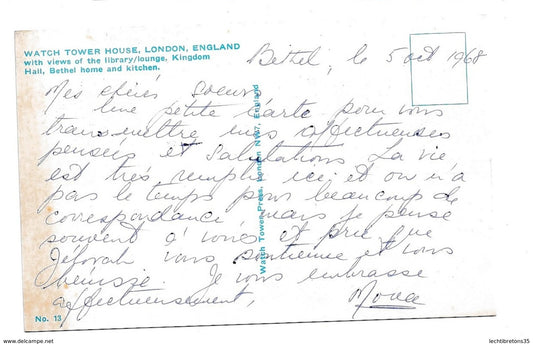 WATCH TOWER HOUSE, LONDON, ENGLAND
with views of the library/lounge, Kingdom
Hall, Bethel home and kitchen.
Béthel, le 5 oct 1968
Mes chères Soeurs
Une petite Carte pour vous
transmettre mes affectueuses
pensées et Salutations La vie
est très remplie ici et on n'a
pas le temps pour beaucoup de
correspondance, mais je pense
souvent à vous et prie que
Jéhovah vous soutienne et vous
bénisse. Je vous embrasse
affectueusement,
Watch Tower Press, London NW7, England
No. 13
delcampe.net
lechtibretons35